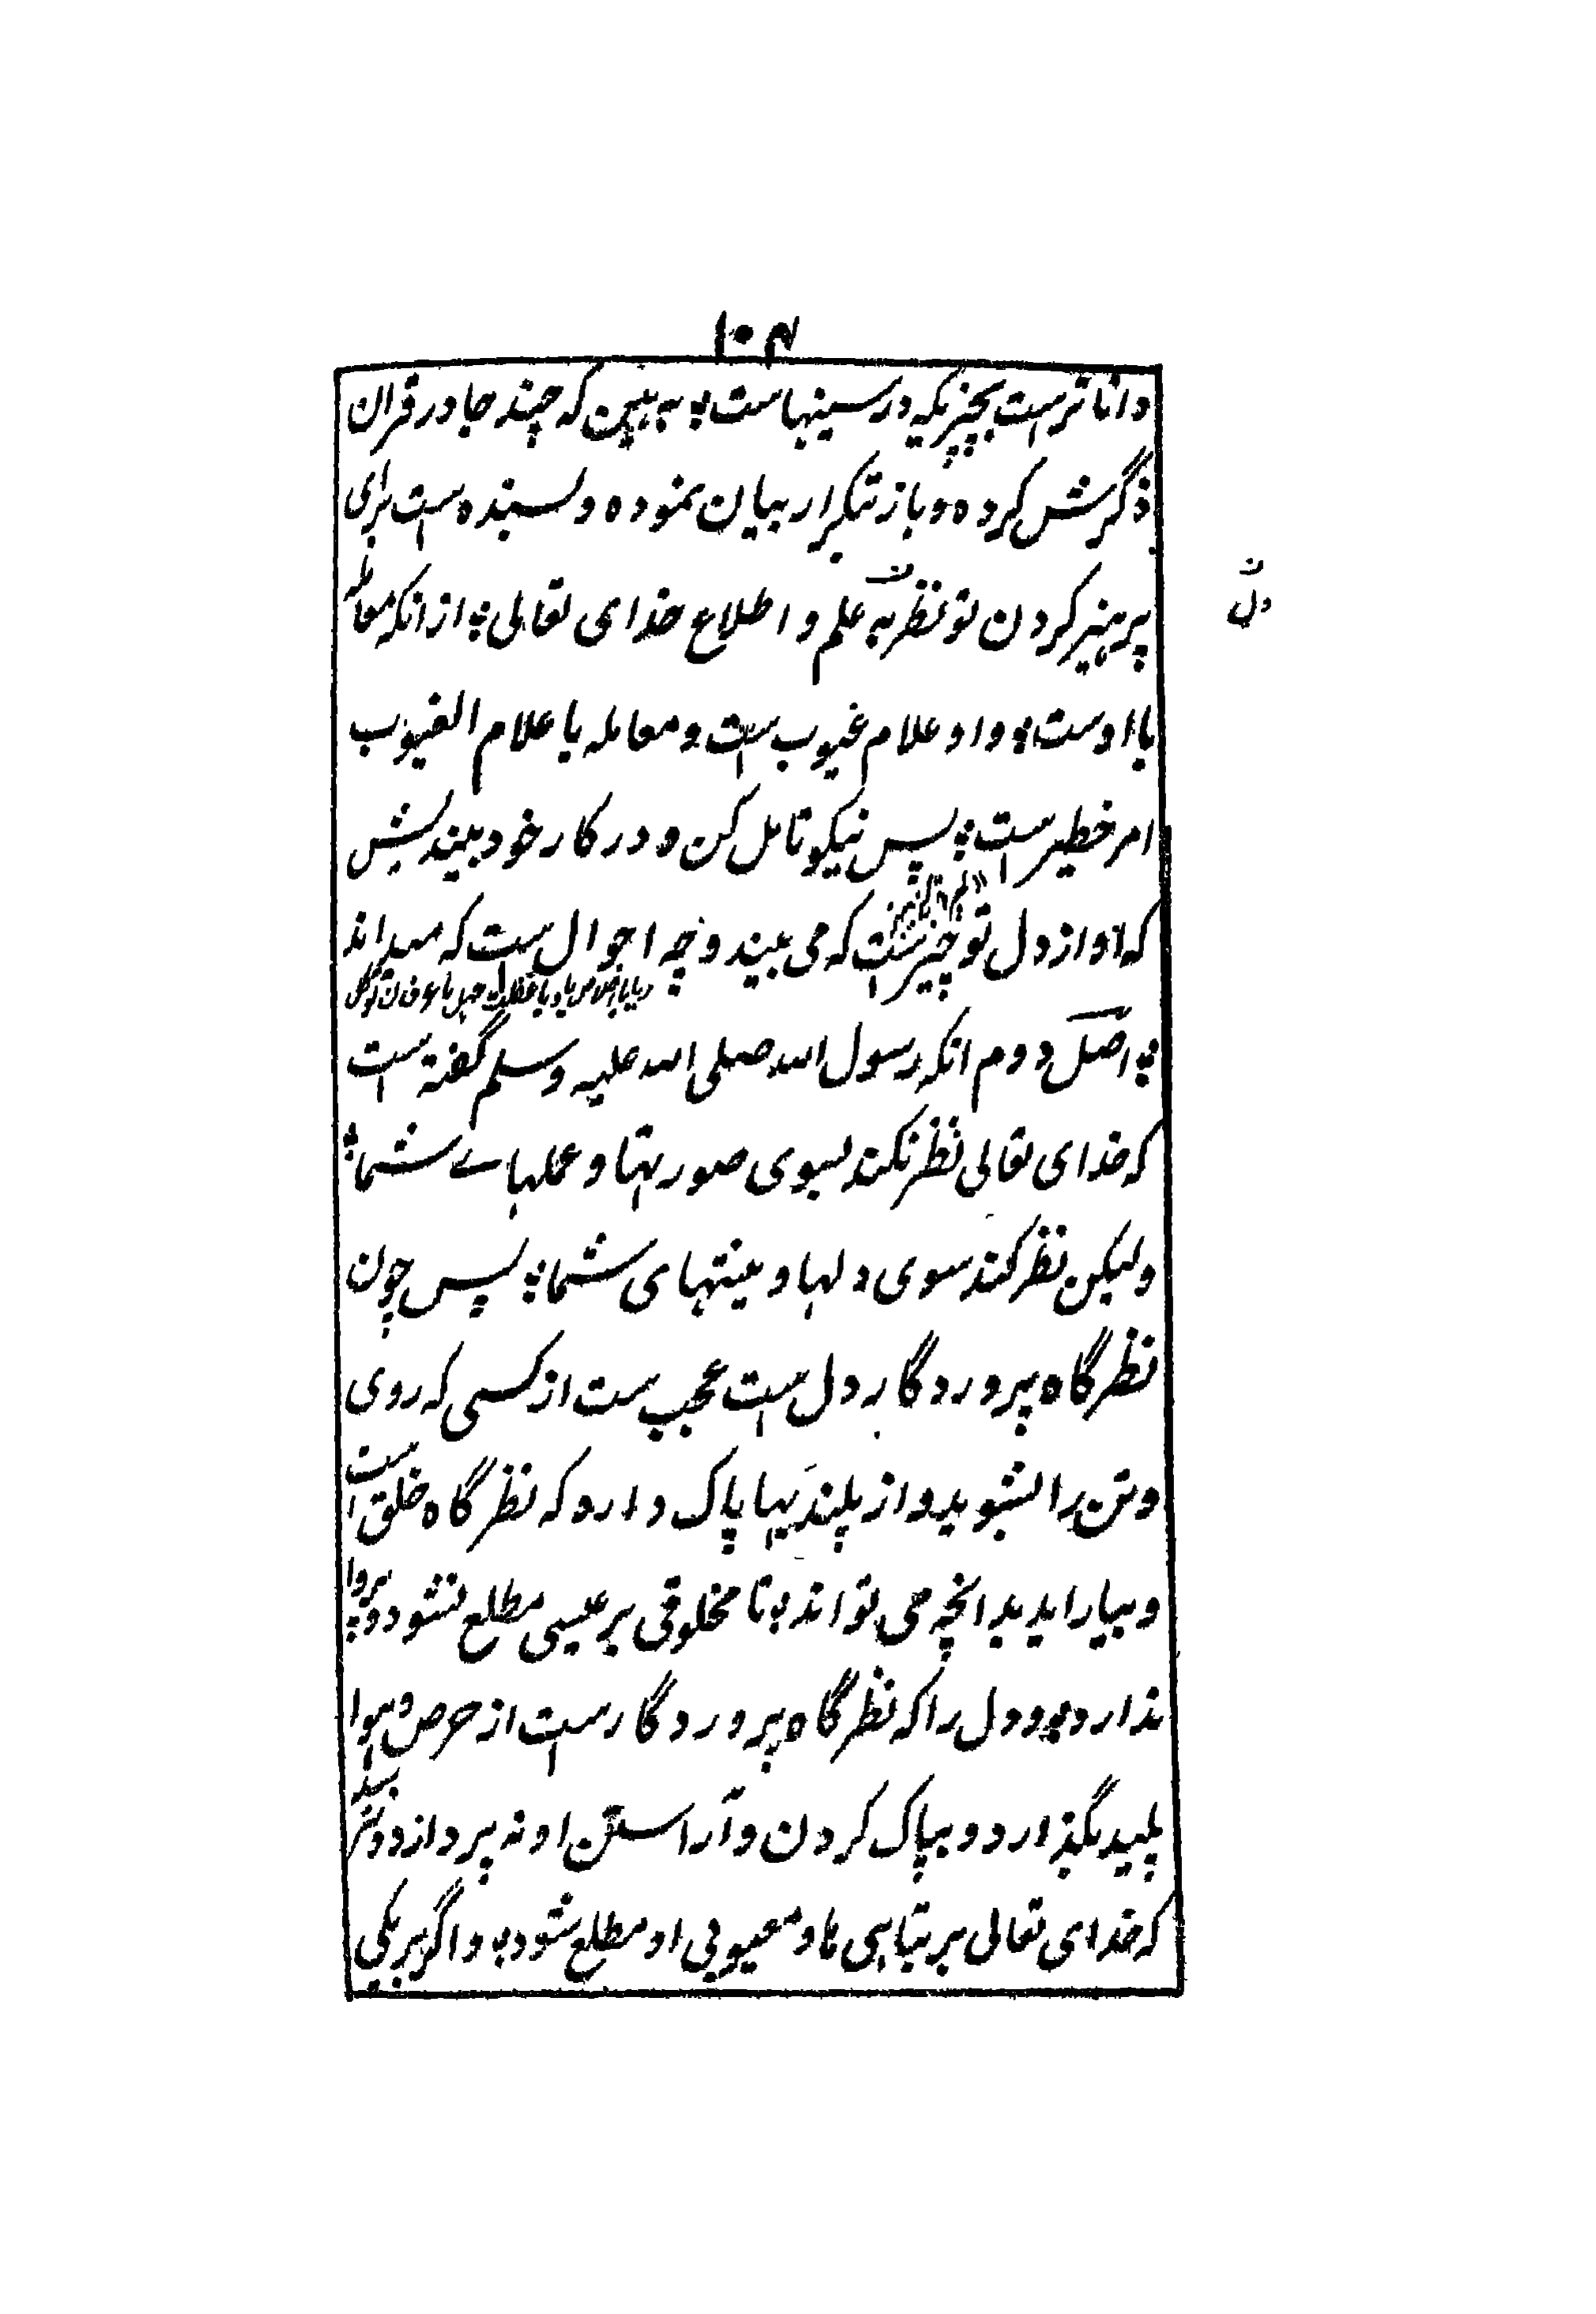 ۱۰۴
داناترست بچیزیکه در سینهاست ؛ به بین که چند جا در قران
ذکرش کرده و باز تکرار بیان نموده و بسنده است برای
پرهیز کردن تو نظر به علم و اطلاع خدای تعالی ؛ از انکه معامله
دل
با اوست ؛ و او علام غیوب ست و معامله با علام الغیوب
امر خطیرست ؛ پس نیکو تامل کن و در کار خود بیندیش
که او از دل تو چیزست که می بیند و چه احوال ست که میداند
؛ اصل دوم انکه رسول الله صلی الله علیه وسلم گفته است
که خدای تعالی نظر نکند بسوی صورتها و عملهاے شما ؛
ولیکن نظر کند سوی دلها و نیتهای شما ؛ پس چون
نظرگاه پروردگار دل ست عجب ست از کسی که روی
و تن را بشوید و از پلیدیها پاک دارد که نظرگاه خلق است
و بیاراید بدانچه می تواند ؛ تا مخلوقی بر عیبی مطلع نشود و پروا
ندارد ؛ و دل را که نظرگاه پروردگارست از حرص و هوا
پلید بگذارد و بپاک کردن و آراستن او نه پردازد و نترسد
که خدای تعالی بر تباهی ها و معیوبی او مطلع شود ؛ و اگر بر یکی